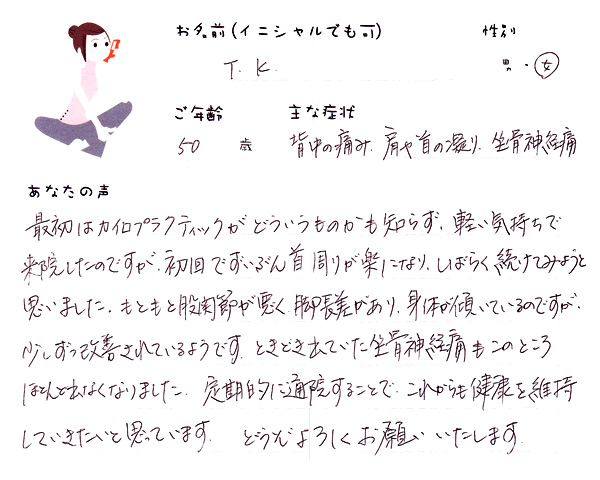 お名前(イニシャルでも可) 性別
T. K. 男・女
ご年齢 主な症状
50 歳 背中の痛み、肩や首の凝り、坐骨神経痛
あなたの声
最初はカイロプラクティックがどういうものかも知らず、軽い気持ちで
来院したのですが、初回でずいぶん首周りが楽になり、しばらく続けてみようと
思いました。もともと股関節が悪く、脚長差があり、身体が傾いているのですが、
少しずつ改善されているようです。ときどき出ていた坐骨神経痛もこのところ
ほとんど出なくなりました。定期的に通院することで、これからも健康を維持
していきたいと思っています。どうぞよろしくお願いいたします。